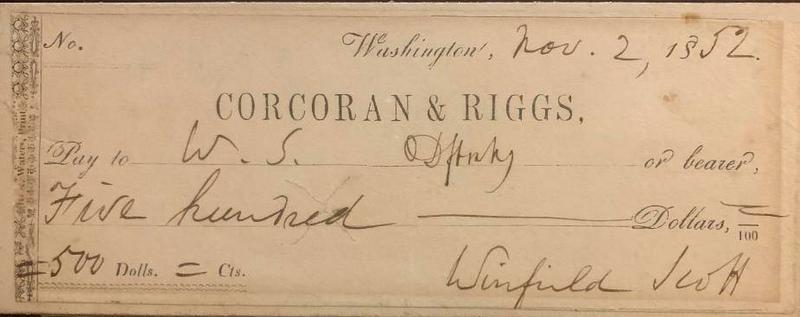 No. Washington, Nov. 2, 1852.
CORCORAN & RIGGS,
Pay to W. S. or bearer,
Five hundred Dollars, 100
=500 Dolls. = Cts.
Winfield Scott